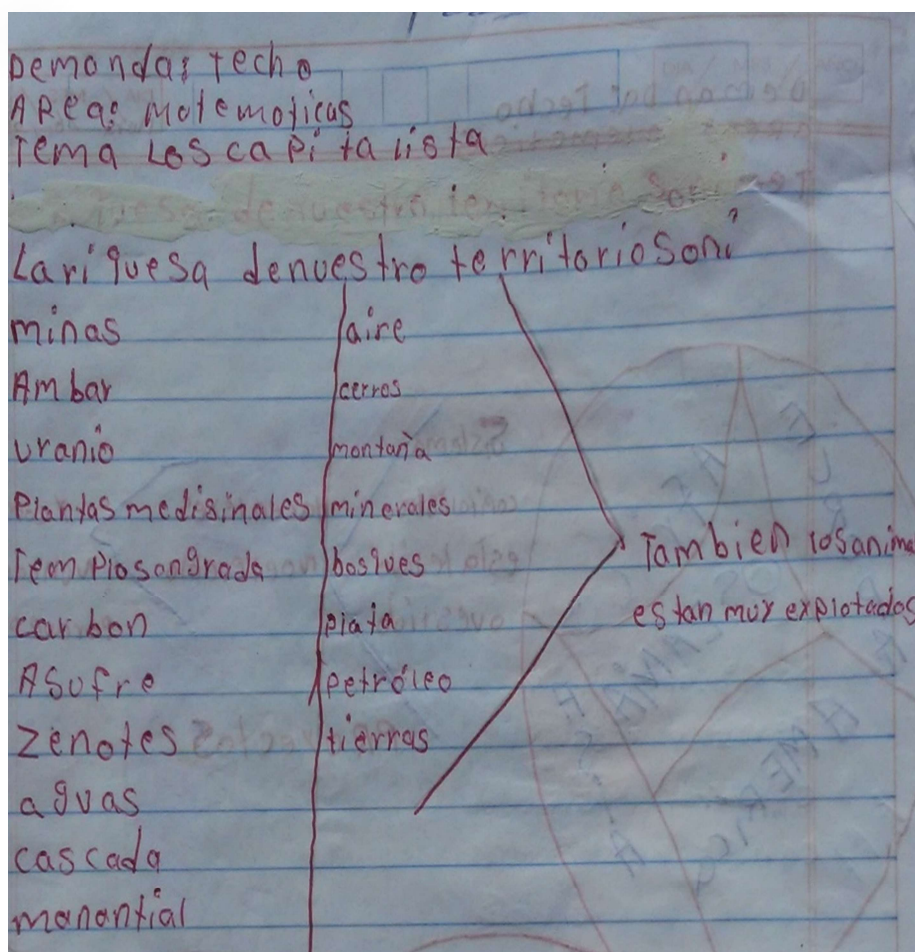 Demanda: Techo
Area: Matematicas
Tema Los capitalista
La riquesa de nuestro territorio son:
minas
Ambar
uranio
Plantas medisinales
Templo sangrada
carbon
Asufre
Zenotes
aguas
cascada
manantial
aire
cerros
montaña
minerales
bosques
plata
petróleo
tierras
Tambien los anima
estan muy explotados